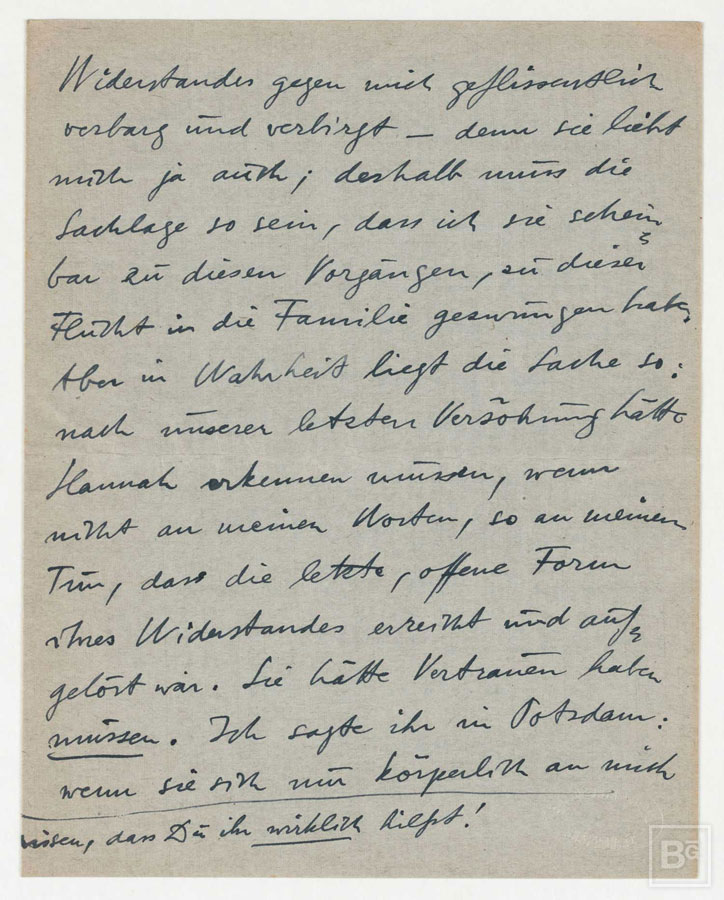 Widerstandes gegen mich geflissentlich
verbarg und verbirgt – denn sie liebt
mich ja auch; deshalb muss die
Sachlage so sein, dass ich sie schein-
bar zu diesen Vorgängen, zu dieser
Flucht in die Familie gezwungen habe.
Aber in Wahrheit liegt die Sache so:
nach unserer letzten Versöhnung hätte
Hannah erkennen müssen, wenn
nicht an meinen Worten, so an meinem
Tun, dass die letzte, offene Form
ihres Widerstandes erreicht und auf-
gelöst war. Sie hätte Vertrauen haben
müssen. Ich sagte ihr in Potsdam:
wenn sie sich nur körperlich an mich
wissen, dass Du ihr wirklich hilfst!
BG